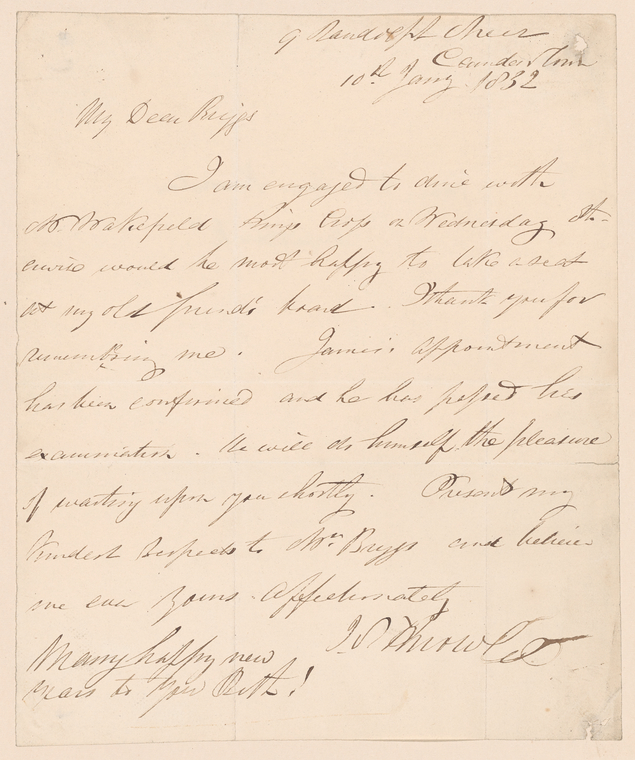 9 Randolph Street
Camden Town
10th Jany 1832
My Dear Briggs
I am engaged to dine with
Mr. Wakefield Kings Cross on Wednesday oth-
erwise would be most happy to take a seat
at my old friend's board. I thank you for
remembring me. James's appointment
has been confirmed and he has passed his
examination. He will do himself the pleasure
of waiting upon you shortly. Present my
kindest respects to Mrs. Briggs and believe
me ever yours affectionately
Many happy new
years to you Both!